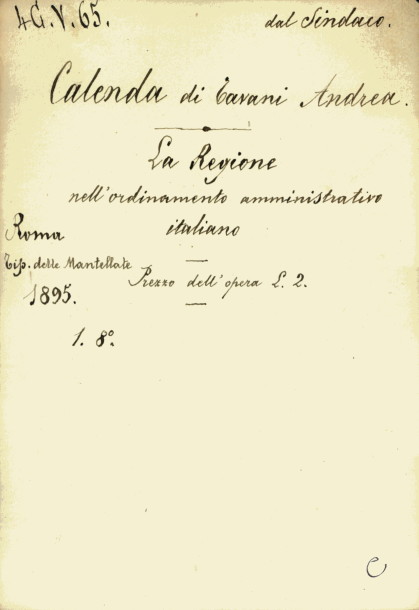 4G.V.65.
dal Sindaco.
Calenda di Tavani Andrea.
La Regione
nell'ordinamento amministrativo
italiano
Roma
Tip. delle Mantellate
1895.
Prezzo dell'opera L. 2.
1. 8°.
C